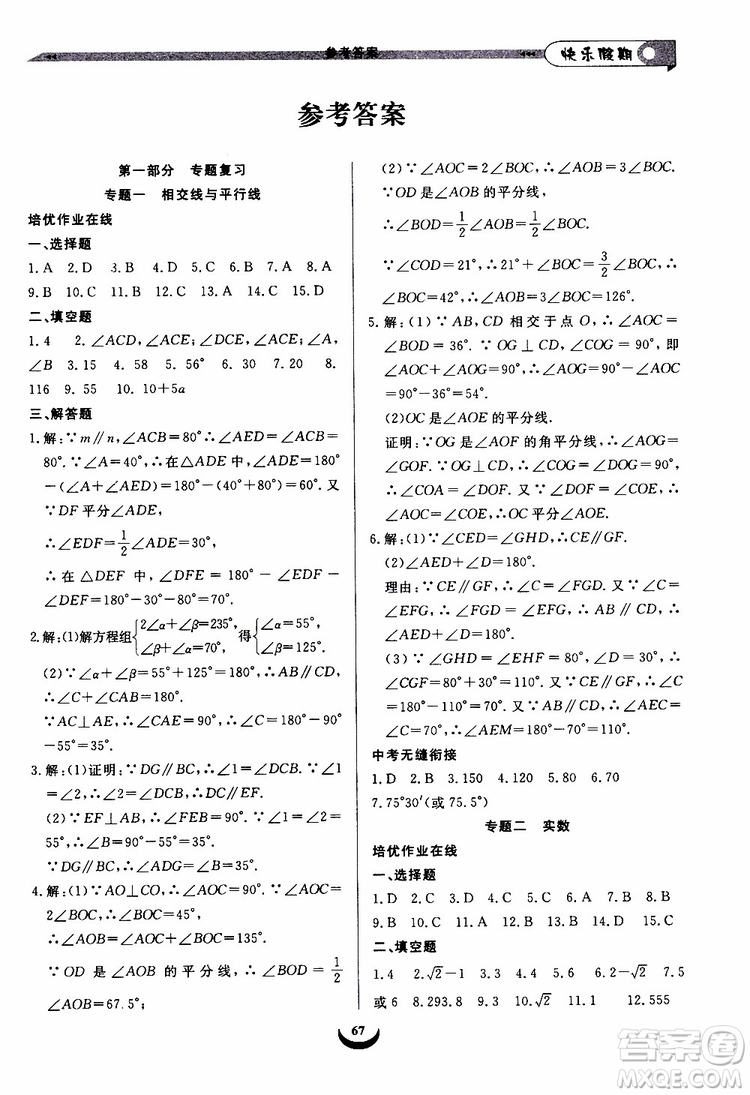 参考答案
快乐假期
参考答案
第一部分 专题复习
专题一 相交线与平行线
培优作业在线
一、选择题
1.A 2.D 3.B 4.D 5.B 6.D 7.A 8.A
9.B 10.C 11.B 12.C 13.A 14.B 15.B 16.D
二、填空题
1.4 2.∠ACD,∠ACE;∠DCE,∠ACE;∠A,
∠B 3.15 4.58 5.56° 6.120° 7.20 8.
116 9.55 10.10+5a
三、解答题
1.解:∵m∥n,∠ACB=80°∴∠AED=∠ACB=
80°.∵∠A=40°,∴在△ADE中,∠ADE=180°
-(∠A+∠AED)=180°-(40°+80°)=60°.又
∵DF平分∠ADE,
∴∠EDF=1/2∠ADE=30°,
∴在△DEF中,∠DFE=180°-∠EDF-
∠DEF=180°-30°-80°=70°.
2.解:(1)解方程组{2∠α+∠β=235°, ∠β-∠α=70°, 得{∠α=55°, ∠β=125°.
(2)∵∠α+∠β=55°+125°=180°,∴AB∥CD,
∴∠C+∠CAB=180°.
∵AC⊥AE,∴∠CAE=90°,∴∠C=180°-90°
-55°=35°.
3.解:(1)证明:∵DG∥BC,∴∠1=∠DCB.∵∠1
=∠2,∴∠2=∠DCB,∴CD∥EF.
(2)∵EF⊥AB,∴∠FEB=90°.∵∠1=∠2=
45°,∴∠B=180°-∠FEB-∠2=45°.
∵DG∥BC,∴∠ADG=∠B=45°.
4.解:(1)∵AO⊥CO,∴∠AOC=90°.∵∠AOC=
2∠BOC,∴∠BOC=45°,
∴∠AOB=∠AOC+∠BOC=135°.
∵OD是∠AOB的平分线,∴∠BOD=1/2
∠AOB=67.5°;
(2)∵∠AOC=2∠BOC,∴∠AOB=3∠BOC.
∵OD是∠AOB的平分线,
∴∠BOD=1/2∠AOB=3/2∠BOC.
∵∠COD=21°,∴21°+∠BOC=3/2∠BOC,
∴∠BOC=42°,∴∠AOB=3∠BOC=126°.
5.解:(1)∵AB,CD相交于点O,∴∠AOC=
∠BOD=36°.∵OG⊥CD,∴∠COG=90°,即
∠AOC+∠AOG=90°,∴∠AOG=90°-∠AOC
=90°-36°=54°.
(2)OC是∠AOE的平分线.
证明:∵OG是∠AOF的角平分线,∴∠AOG=
∠GOF.∵OG⊥CD,∴∠COG=∠DOG=90°,
∴∠COA=∠DOF.又∵∠DOF=∠COE,
∴∠AOC=∠COE,∴OC平分∠AOE.
6.解:(1)∵∠CED=∠GHD,∴CE∥GF.
(2)∠AED+∠D=180°.
理由:∵CE∥GF,∴∠C=∠FGD.又∵∠C=
∠EFG,∴∠FGD=∠EFG,∴AB∥CD,
∴∠AED+∠D=180°.
(3)∵∠GHD=∠EHF=80°,∠D=30°,
∴∠CGF=80°+30°=110°.∵CE∥GF,∴∠C
=180°-110°=70°.∵AB∥CD,∴∠AEC=
∠C=70°,∴∠AEM=180°-70°=110°.
中考无缝衔接
1.D 2.B 3.150 4.120 5.60 6.70
7.75°30′(或75.5°)
专题二 实数
培优作业在线
一、选择题
1.D 2.C 3.A 4.D 5.C 6.A 7.B 8.B
9.B 10.C 11.A 12.D 13.B 14.C
二、填空题
1.4 2.√2-1 3.4 4.√6 5.2 6.-2 7.5
或6 8.293.8 9.3 10.√2 11.1 12.555
67
答案圈
MXQE.COM